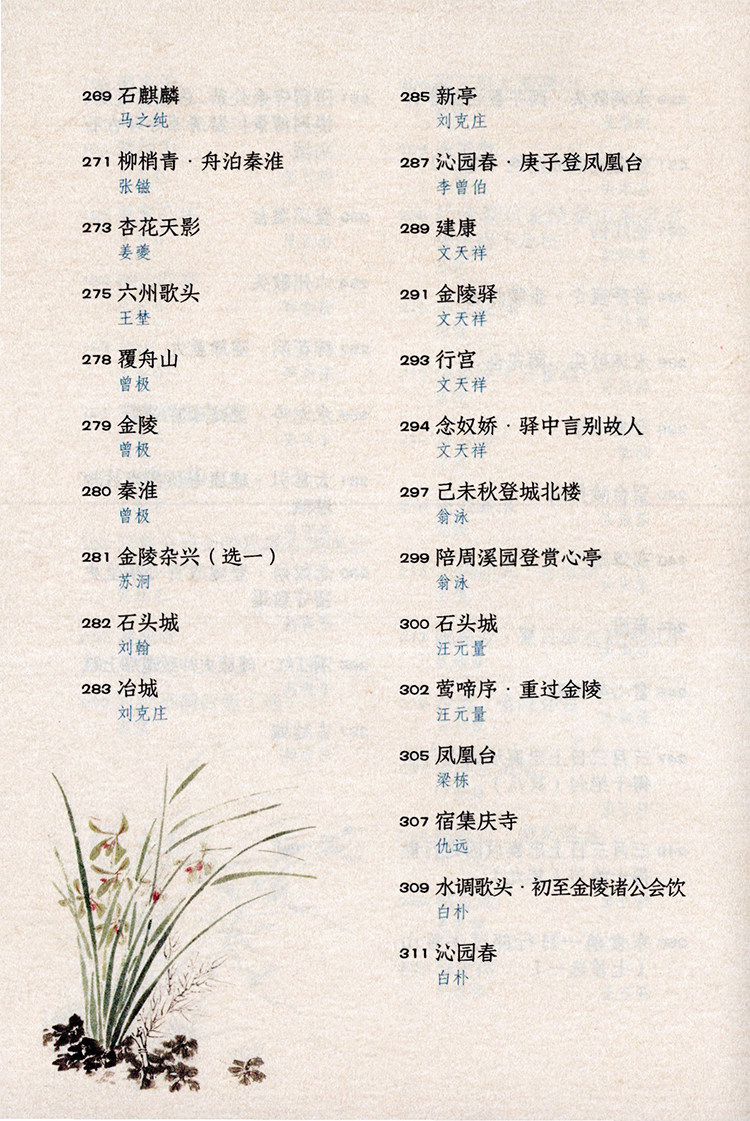 269 石麒麟
马之纯
271 柳梢青·舟泊秦淮
张镃
273 杏花天影
姜夔
275 六州歌头
王埜
278 覆舟山
曾极
279 金陵
曾极
280 秦淮
曾极
281 金陵杂兴（选一）
苏泂
282 石头城
刘翰
283 冶城
刘克庄
285 新亭
刘克庄
287 沁园春·庚子登凤凰台
李曾伯
289 建康
文天祥
291 金陵驿
文天祥
293 行宫
文天祥
294 念奴娇·驿中言别故人
文天祥
297 己未秋登城北楼
翁泳
299 陪周溪园登赏心亭
翁泳
300 石头城
汪元量
302 莺啼序·重过金陵
汪元量
305 凤凰台
梁栋
307 宿集庆寺
仇远
309 水调歌头·初至金陵诸公会饮
白朴
311 沁园春
白朴